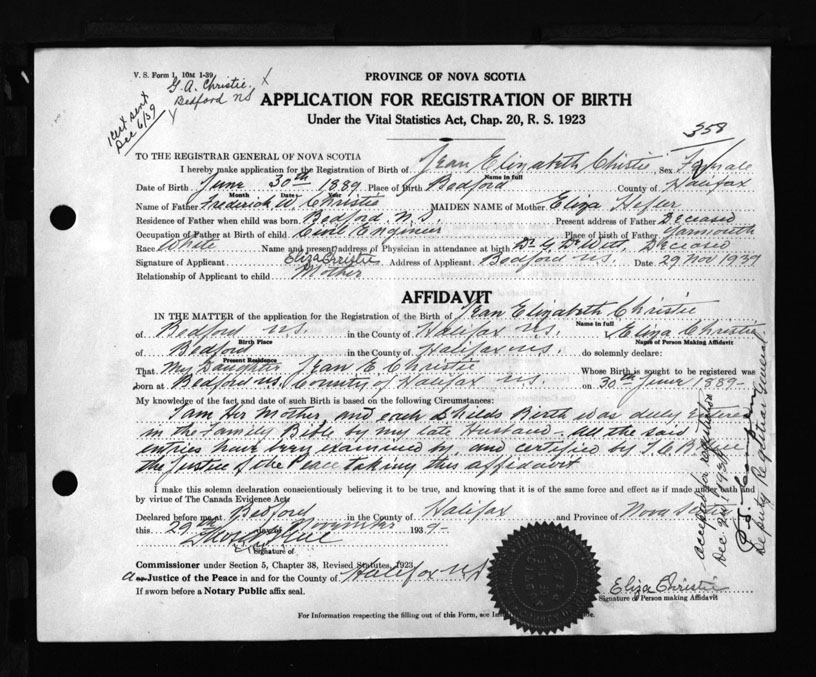 V. S. Form 1, 10M 1-39
G. A. Christie.
Bedford NS
Cert sent
Dec 6/39
PROVINCE OF NOVA SCOTIA
APPLICATION FOR REGISTRATION OF BIRTH
Under the Vital Statistics Act, Chap. 20, R. S. 1923
358
TO THE REGISTRAR GENERAL OF NOVA SCOTIA
I hereby make application for the Registration of Birth of Jean Elizabeth Christie, Sex Female
Name in full
Date of Birth June 30th 1889 Place of Birth Bedford County of Halifax
Month Date Year
Name of Father Frederick W. Christie MAIDEN NAME of Mother Eliza Hefler
Residence of Father when child was born Bedford N.S. Present address of Father Deceased
Occupation of Father at Birth of child Civil Engineer Place of birth of Father Yarmouth
Race White Name and present address of Physician in attendance at birth Dr G. DeWitt, Deceased
Signature of Applicant Eliza Christie Address of Applicant Bedford N.S. Date 29 Nov 1939
Relationship of Applicant to child Mother
AFFIDAVIT
IN THE MATTER of the application for the Registration of the Birth of Jean Elizabeth Christie
Name in full
of Bedford N.S. in the County of Halifax N.S. Eliza Christie
Birth Place Name of Person Making Affidavit
of Bedford in the County of Halifax N.S. do solemnly declare:
Present Residence
That My Daughter Jean E Christie Whose Birth is sought to be registered was
born at Bedford N.S. County of Halifax N.S. on 30th June 1889
My knowledge of the fact and date of such Birth is based on the following Circumstances:
I am Her Mother and each Childs Birth was duly Entered
in the Family Bible by my late Husband - All the said
entries have been examined by, and certified by
the Justice of the Peace taking this affidavit
I make this solemn declaration conscientiously believing it to be true, and knowing that it is of the same force and effect as if made under oath and
by virtue of The Canada Evidence Act:
Declared before me at Bedford in the County of Halifax and Province of Nova Scotia
this 29th day of November 1939
Signature of
Commissioner under Section 5, Chapter 38, Revised Statutes, 1923
a Justice of the Peace in and for the County of Halifax N.S
If sworn before a Notary Public affix seal.
Eliza Christie
Signature of Person making Affidavit
For Information respecting the filling out of this Form, see
accepted for registration
Dec. 2nd, 1939
Deputy Registrar General